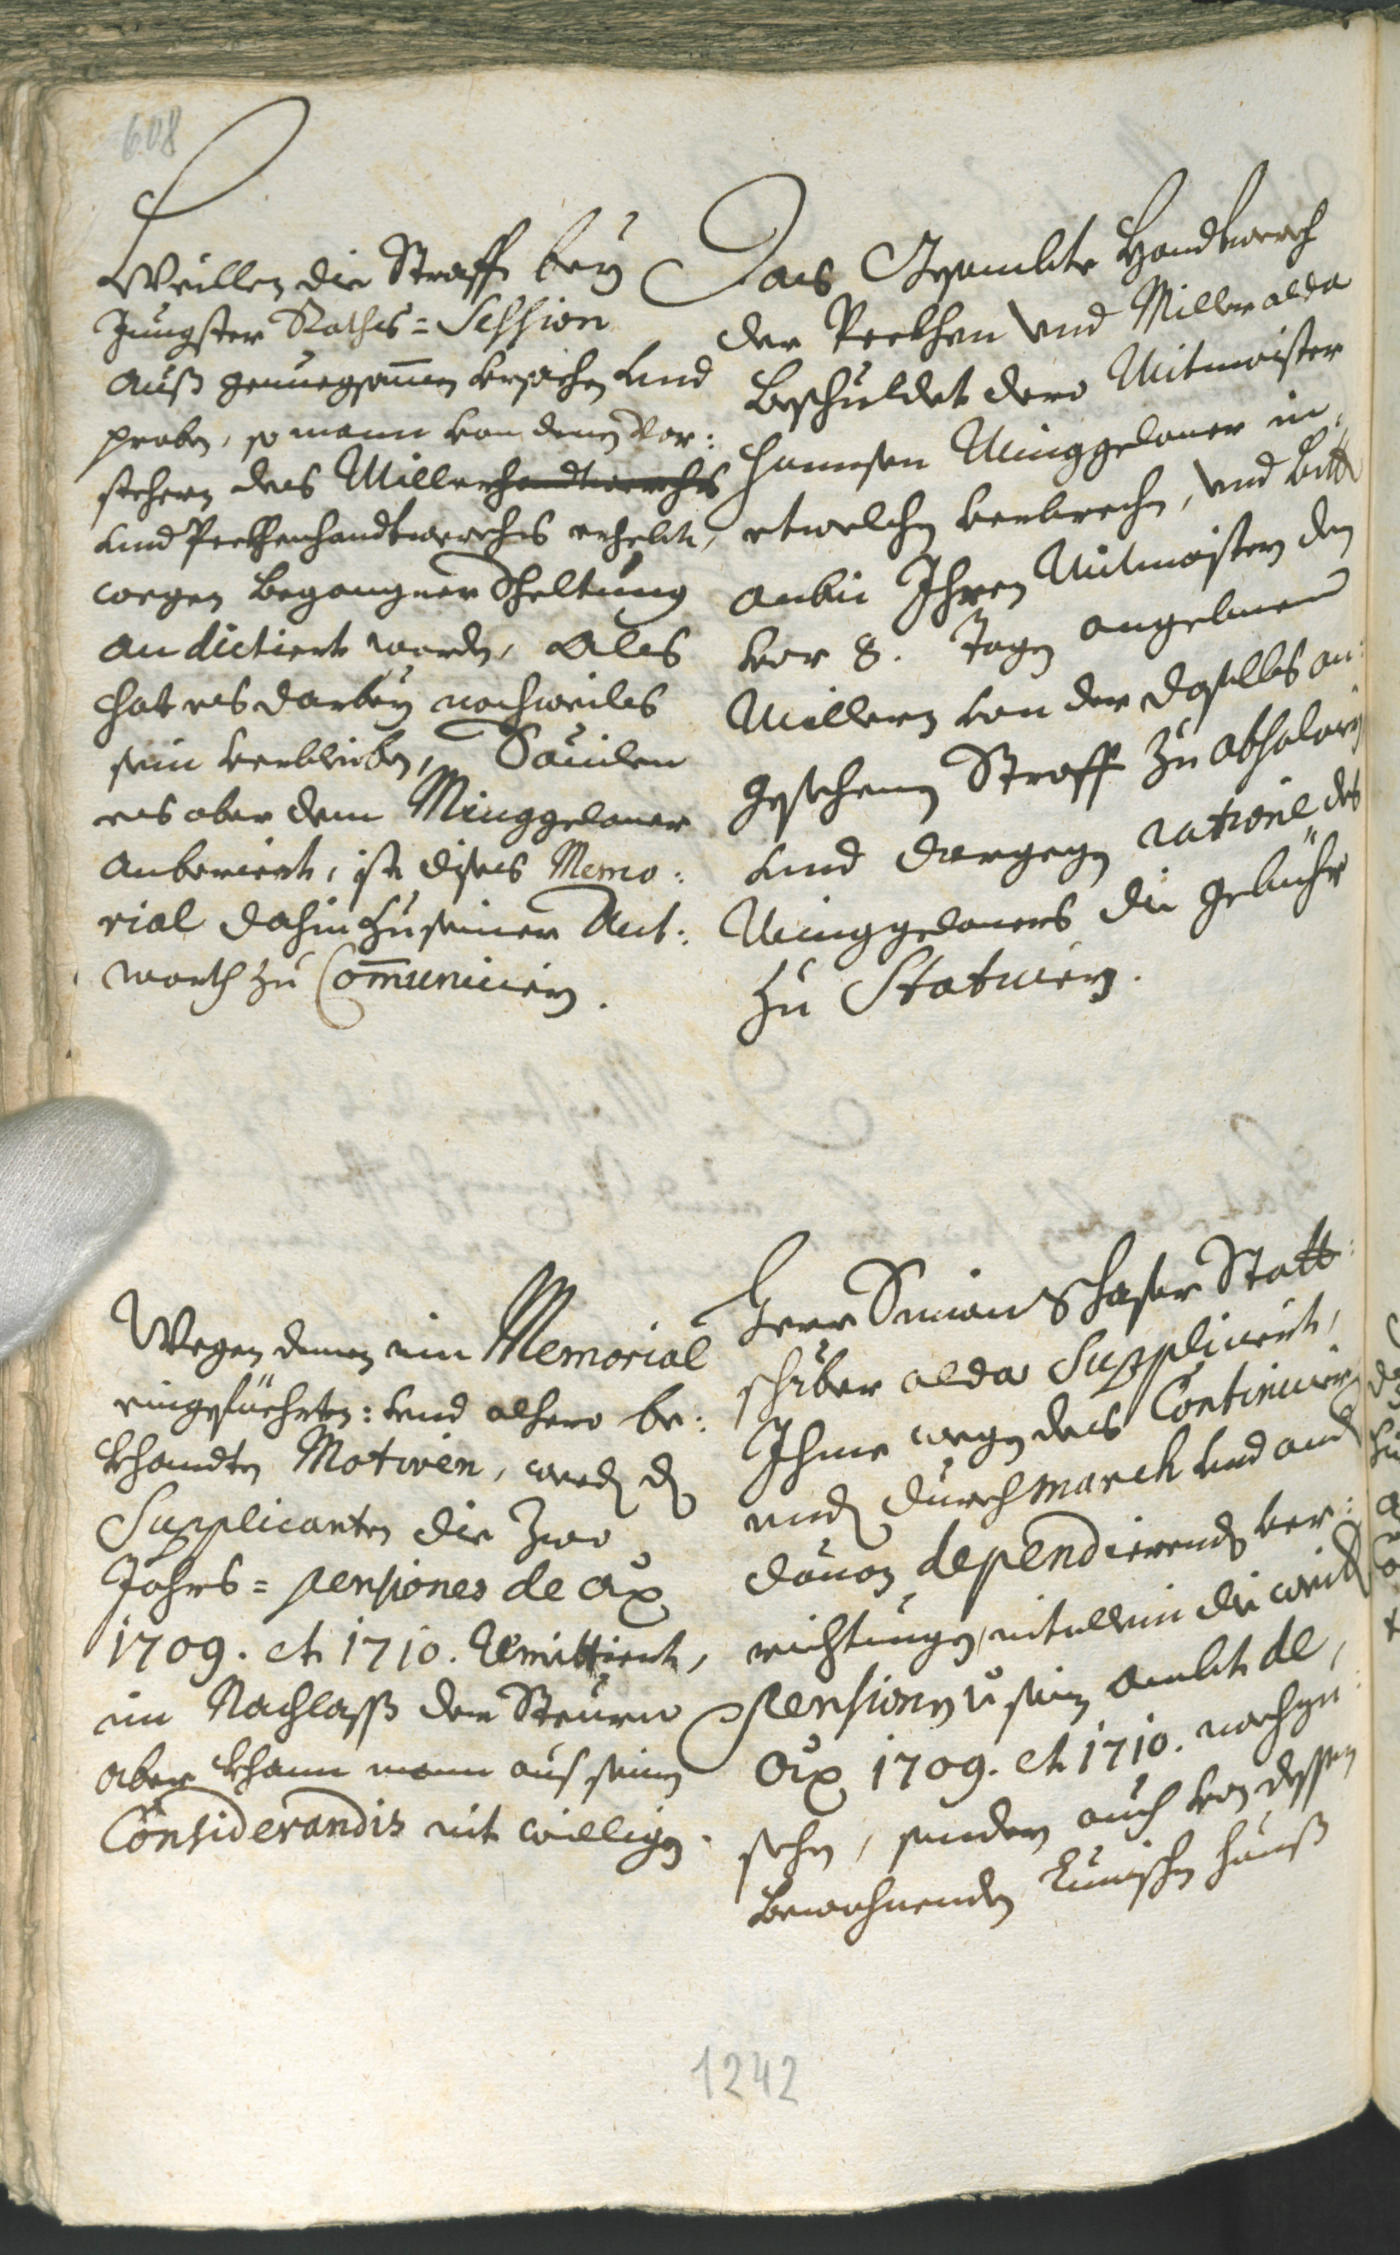 608
Weillen die Straff beÿ
Jüngster Raths=Session
auß genuegsamen Vrsachen Vnd
proben, so mann von denen Vor:
stehern des Miller handtwerchs
Vnd Peckhenhandtwerchs erhelt,
wegen begangner Scheltung
an dictiert worden, Als
hat es darbeÿ nochweils
sein verbleiben, Souilen
es aber dem Minggelauer
anberiert, ist dises Memo:
rial dahin zu seiner Ant:
worth zu Com̄uniciern.
Das Gesambte Handtwerch
der Peckhen Vnd Miller alda
Beschuldet dero Mitmaister
Hannsen Minggelauer in
etwelchen verbrechen, Vnd bitt
anbei Ihren Mitmaistern den
vor 8. Tagen angebnen
Millern von der daselbs an:
gesehenen Straff zu absolviern
Vnd dargegen ratione des
Minggelauers die gebühr
zu Statuiern.
Wegen denen im Memorial
eingefüehrten: Vnd alhero be:
khandten Motiven, werden dem
Supplicanten die zwo
Jahrs=pensiones de aõ
1709. et 1710. Remittiert,
im Nachlaß der Steuren
aber khann mann aus seinen
Considerandis nit willigen.
Herr Simon Schaffer Statt:
schreiber alda Supplicirt,
Ihme wegen des Continuier
enden durchmarch Vnd and
dauon dependierenden ver:
richtungen, nit allein die
Pensionen seines ambts de
aõ 1709. et 1710. nachzu:
sehen, sondern auch von dessen
bewohnenden hauß
1242